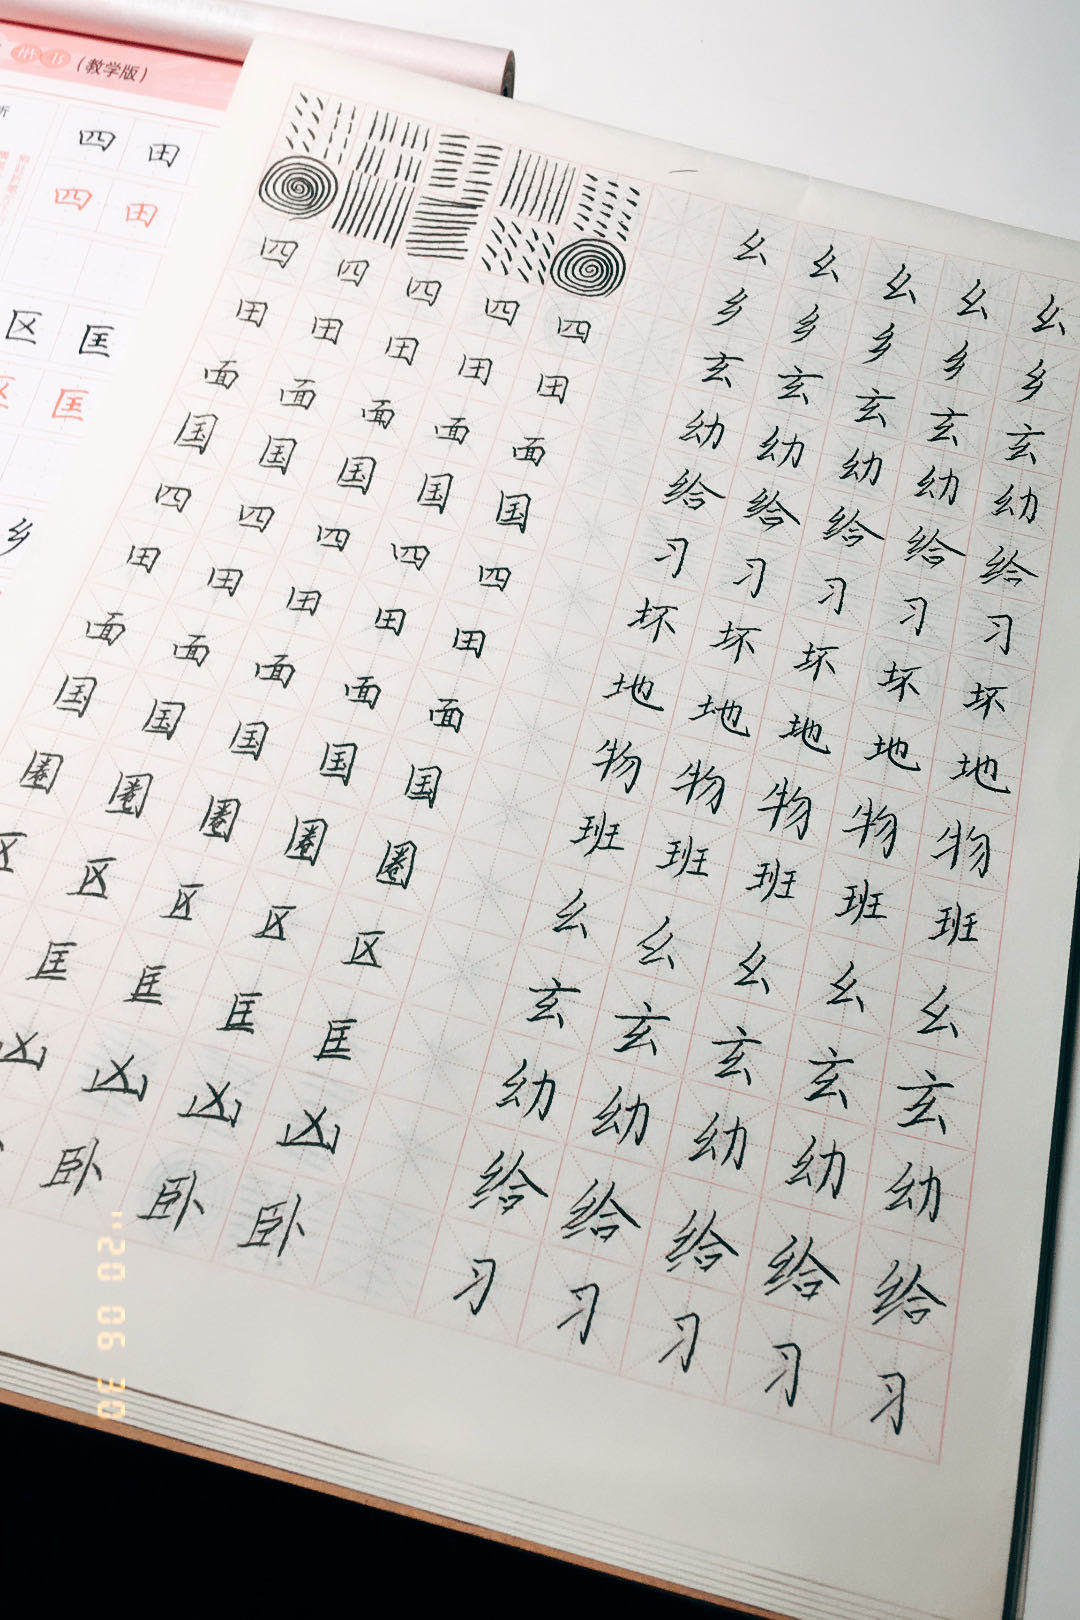 (教学版)
四 田
四 田
区 匡
区 匡
乡
四 四 四 四 四
田 田 田 田 田
面 面 面 面 面
国 国 国 国 国
四 四 四 四 四
田 田 田 田 田
面 面 面 面 面
国 国 国 国 国
圈 圈 圈 圈 圈
区 区 区 区 区
匡 匡 匡 匡
凶 凶 凶 凶
卧 卧 卧
幺 幺 幺 幺 幺
乡 乡 乡 乡 乡
玄 玄 玄 玄 玄
幼 幼 幼 幼 幼
给 给 给 给 给
习 习 习 习 习
坏 坏 坏 坏 坏
地 地 地 地 地
物 物 物 物 物
班 班 班 班 班
幺 幺 幺 幺 幺
玄 玄 玄 玄 玄
幼 幼 幼 幼 幼
给 给 给 给 给
习 习 习 习 习
'20 06 30